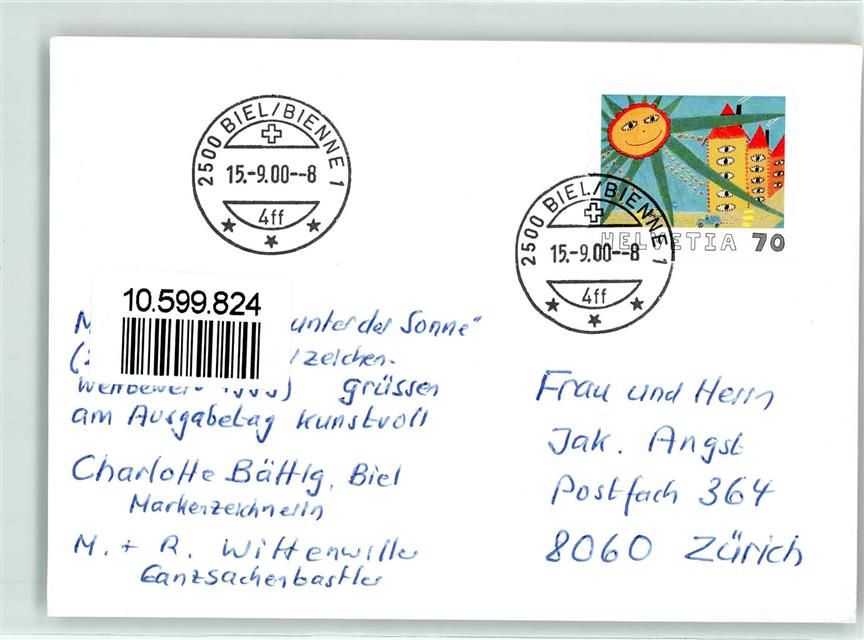 2500 BIEL/BIENNE 1
15.-9.00--8
4ff
HELVETIA 70
2500 BIEL/BIENNE 1
15.-9.00--8
4ff
10.599.824
unter der Sonne"
zeichen-
grüssen
am Ausgabetag kunstvoll
Charlotte Bättig, Biel
Markenzeichnerin
M. + R. Wittenwiller
Ganzsachenbastler
Frau und Herrn
Jak. Angst
Postfach 364
8060 Zürich